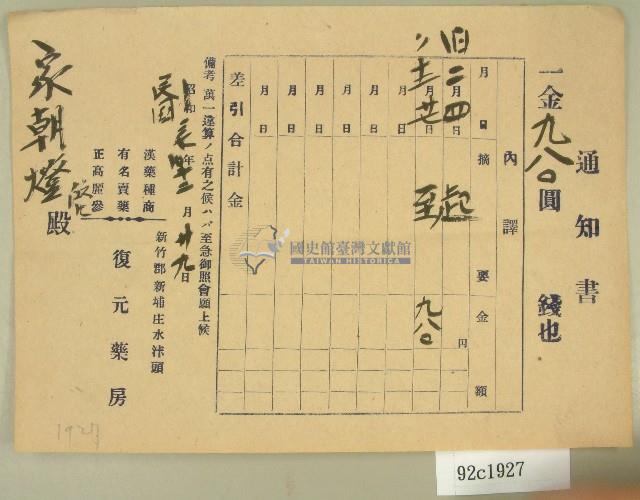 通知書
一金九八〇圓 錢也
內譯
月 日 摘 要 金額
旧二月四日 起 円
〃 十二月廿日 至 九八〇
月 日
月 日
月 日
月 日
月 日
月 日
差引合計金
備考 萬一違算ノ点有之候ハヾ至急御照會願上候
昭和 年 月廿九日
民國
新竹郡新埔庄水汴頭
漢藥種商
有名賣藥
正高麗參
復元藥房
朝燈 殿
國史館臺灣文獻館
TAIWAN HISTORICA
1927
92c1927